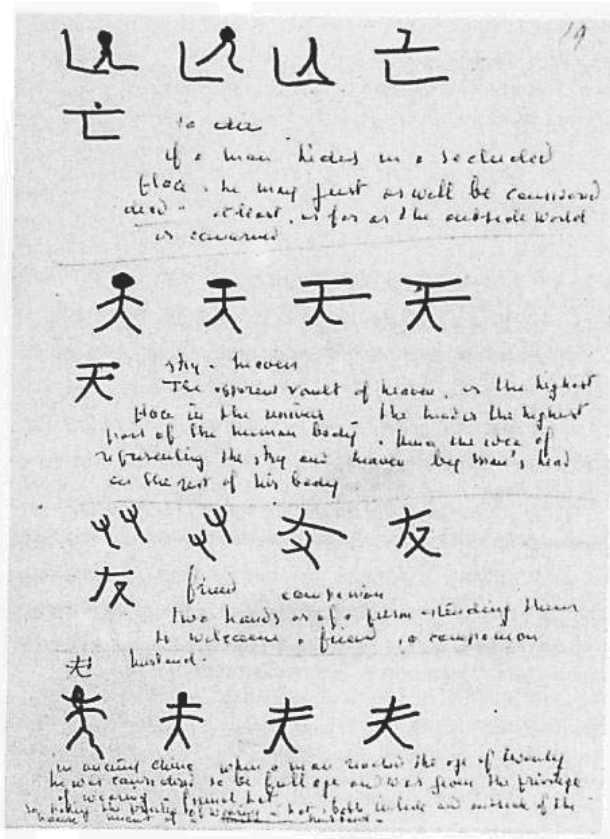 19
亡
亡 to die
if a man hides in a secluded
place, he may just as well be considered
dead - at least, as far as the outside world
is concerned
天 天 天
天 sky - heaven
The apparent vault of heaven, is the highest
place in the univers the head is the highest
part of the human body. hence the idea of
representing the sky and heaven by man's head
on the rest of his body
友
友 friend companion
two hands as of a person extending them
to welcome a friend, a companion
夫 husband.
夫 夫
in ancient China when a man reached the age of twenty
he was considered to be full age and was given the privilege
of wearing a formal hat
hat, both inside and outside of the
house meant husband.